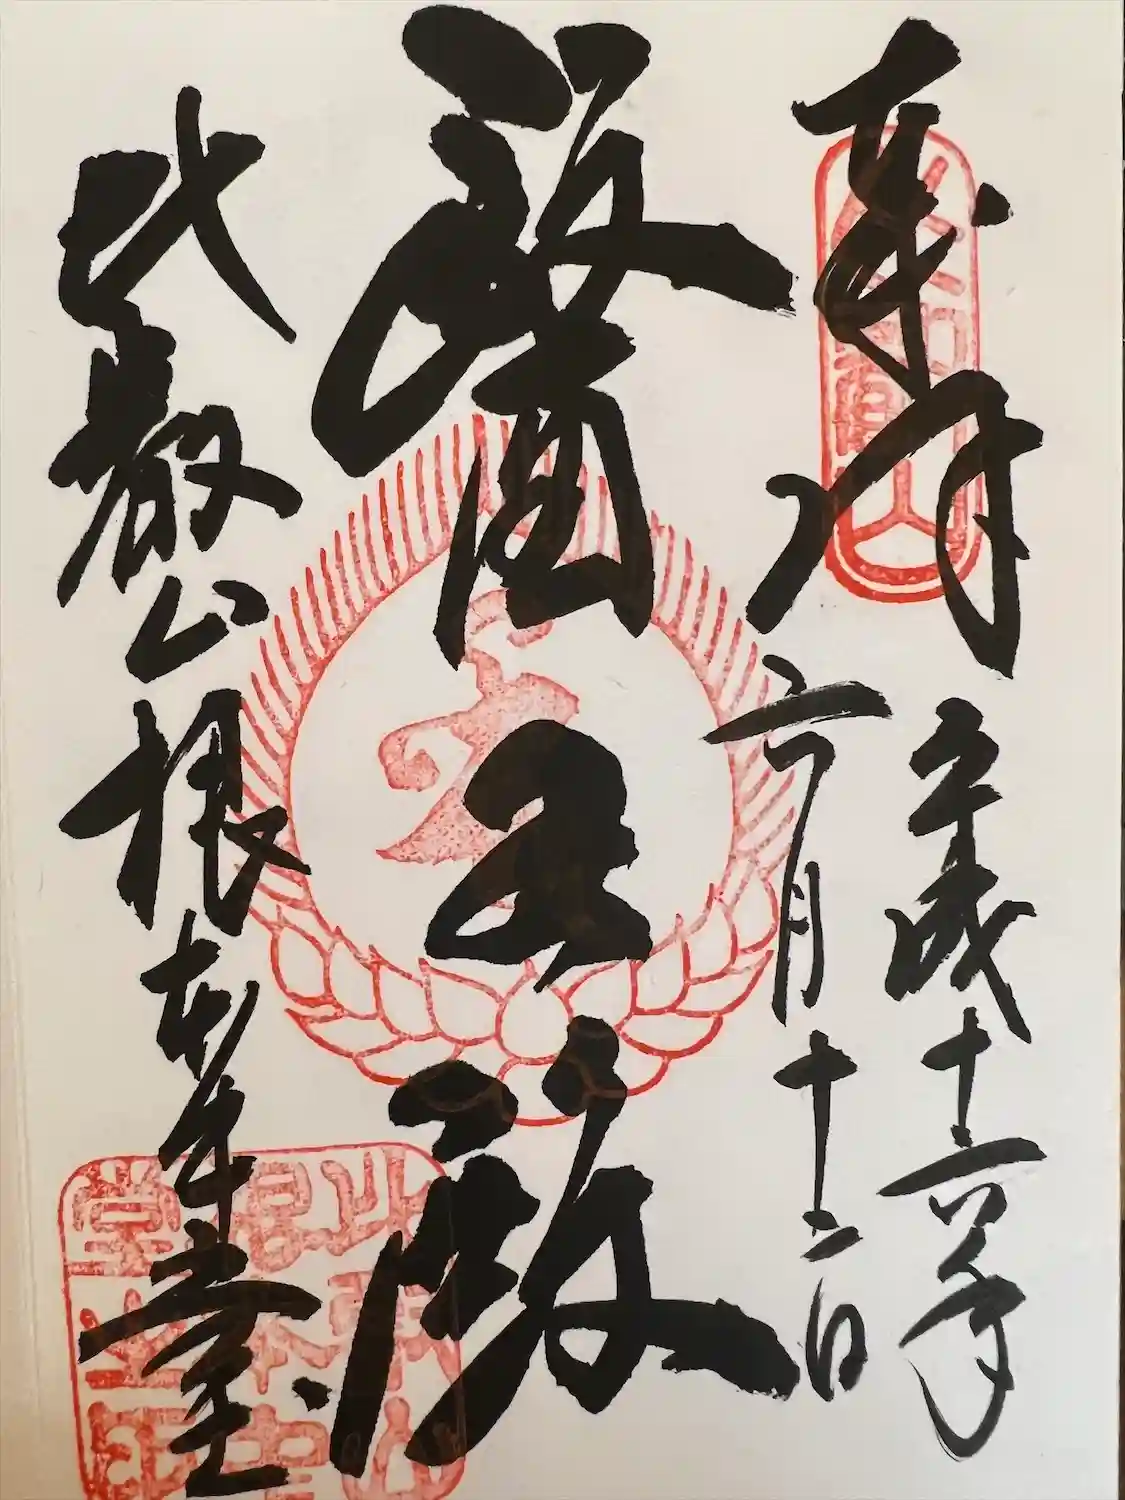 奉拝
平成十六年
六月十二日
醫王殿
比叡山根本中堂
比叡山
根本中
堂之印